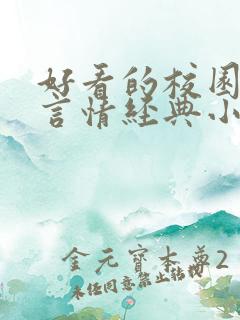 好看的校园
言情经典小
金元宝本尊2
未经同意禁止转载